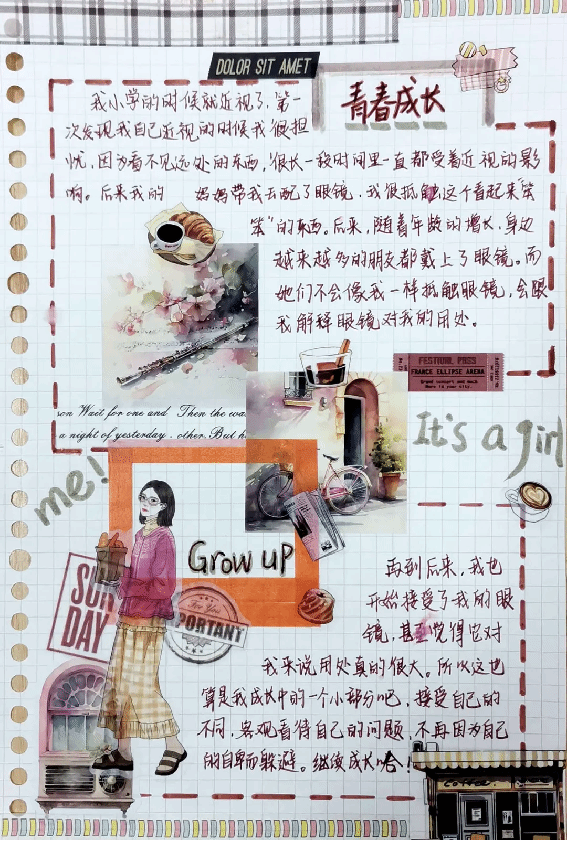 DOLOR SIT AMET
青春成长
我小学的时候就近视了，第一
次发现我自己近视的时候我很担
忧，因为看不见远处的东西，很长一段时间里一直都受着近视的影
响。后来我的 妈妈带我去配了眼镜，我很抵触这个看起来“笨
笨”的东西。后来，随着年龄的增长，身边
越来越多的朋友都戴上了眼镜。而
她们不会像我一样抵触眼镜，会跟
我解释眼镜对我的用处。
FESTIVAL PASS
FRANCE ELLIPSE ARENA
son Wait for one and Then the wa
a night of yesterday . other. But h
It's a girl
me!
Grow up
SUN
DAY
For You
PORTANT
再到后来，我也
开始接受了我的眼
镜，甚至觉得它对
我来说用处真的很大。所以这也
算是我成长中的一个小部分吧，接受自己的
不同，客观看待自己的问题，不再因为自己
的自卑而躲避。继续成长哈！
COFFEE